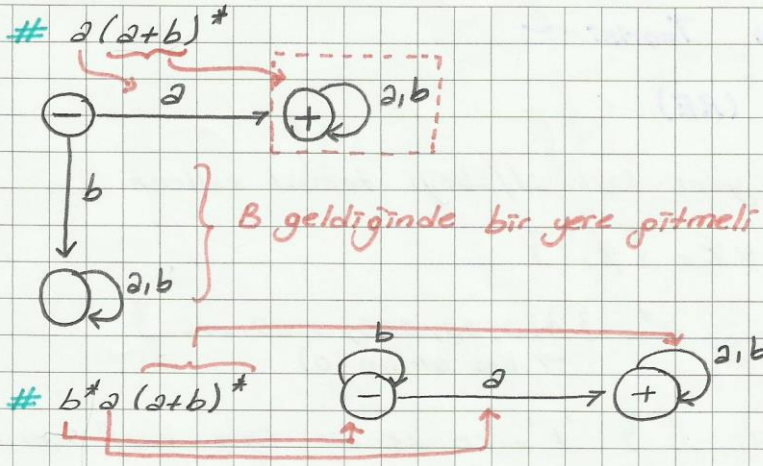 # a(a+b)*
a
- + a,b
b
B geldiğinde bir yere gitmeli
a,b
b
# b*a(a+b)* - a + a,b